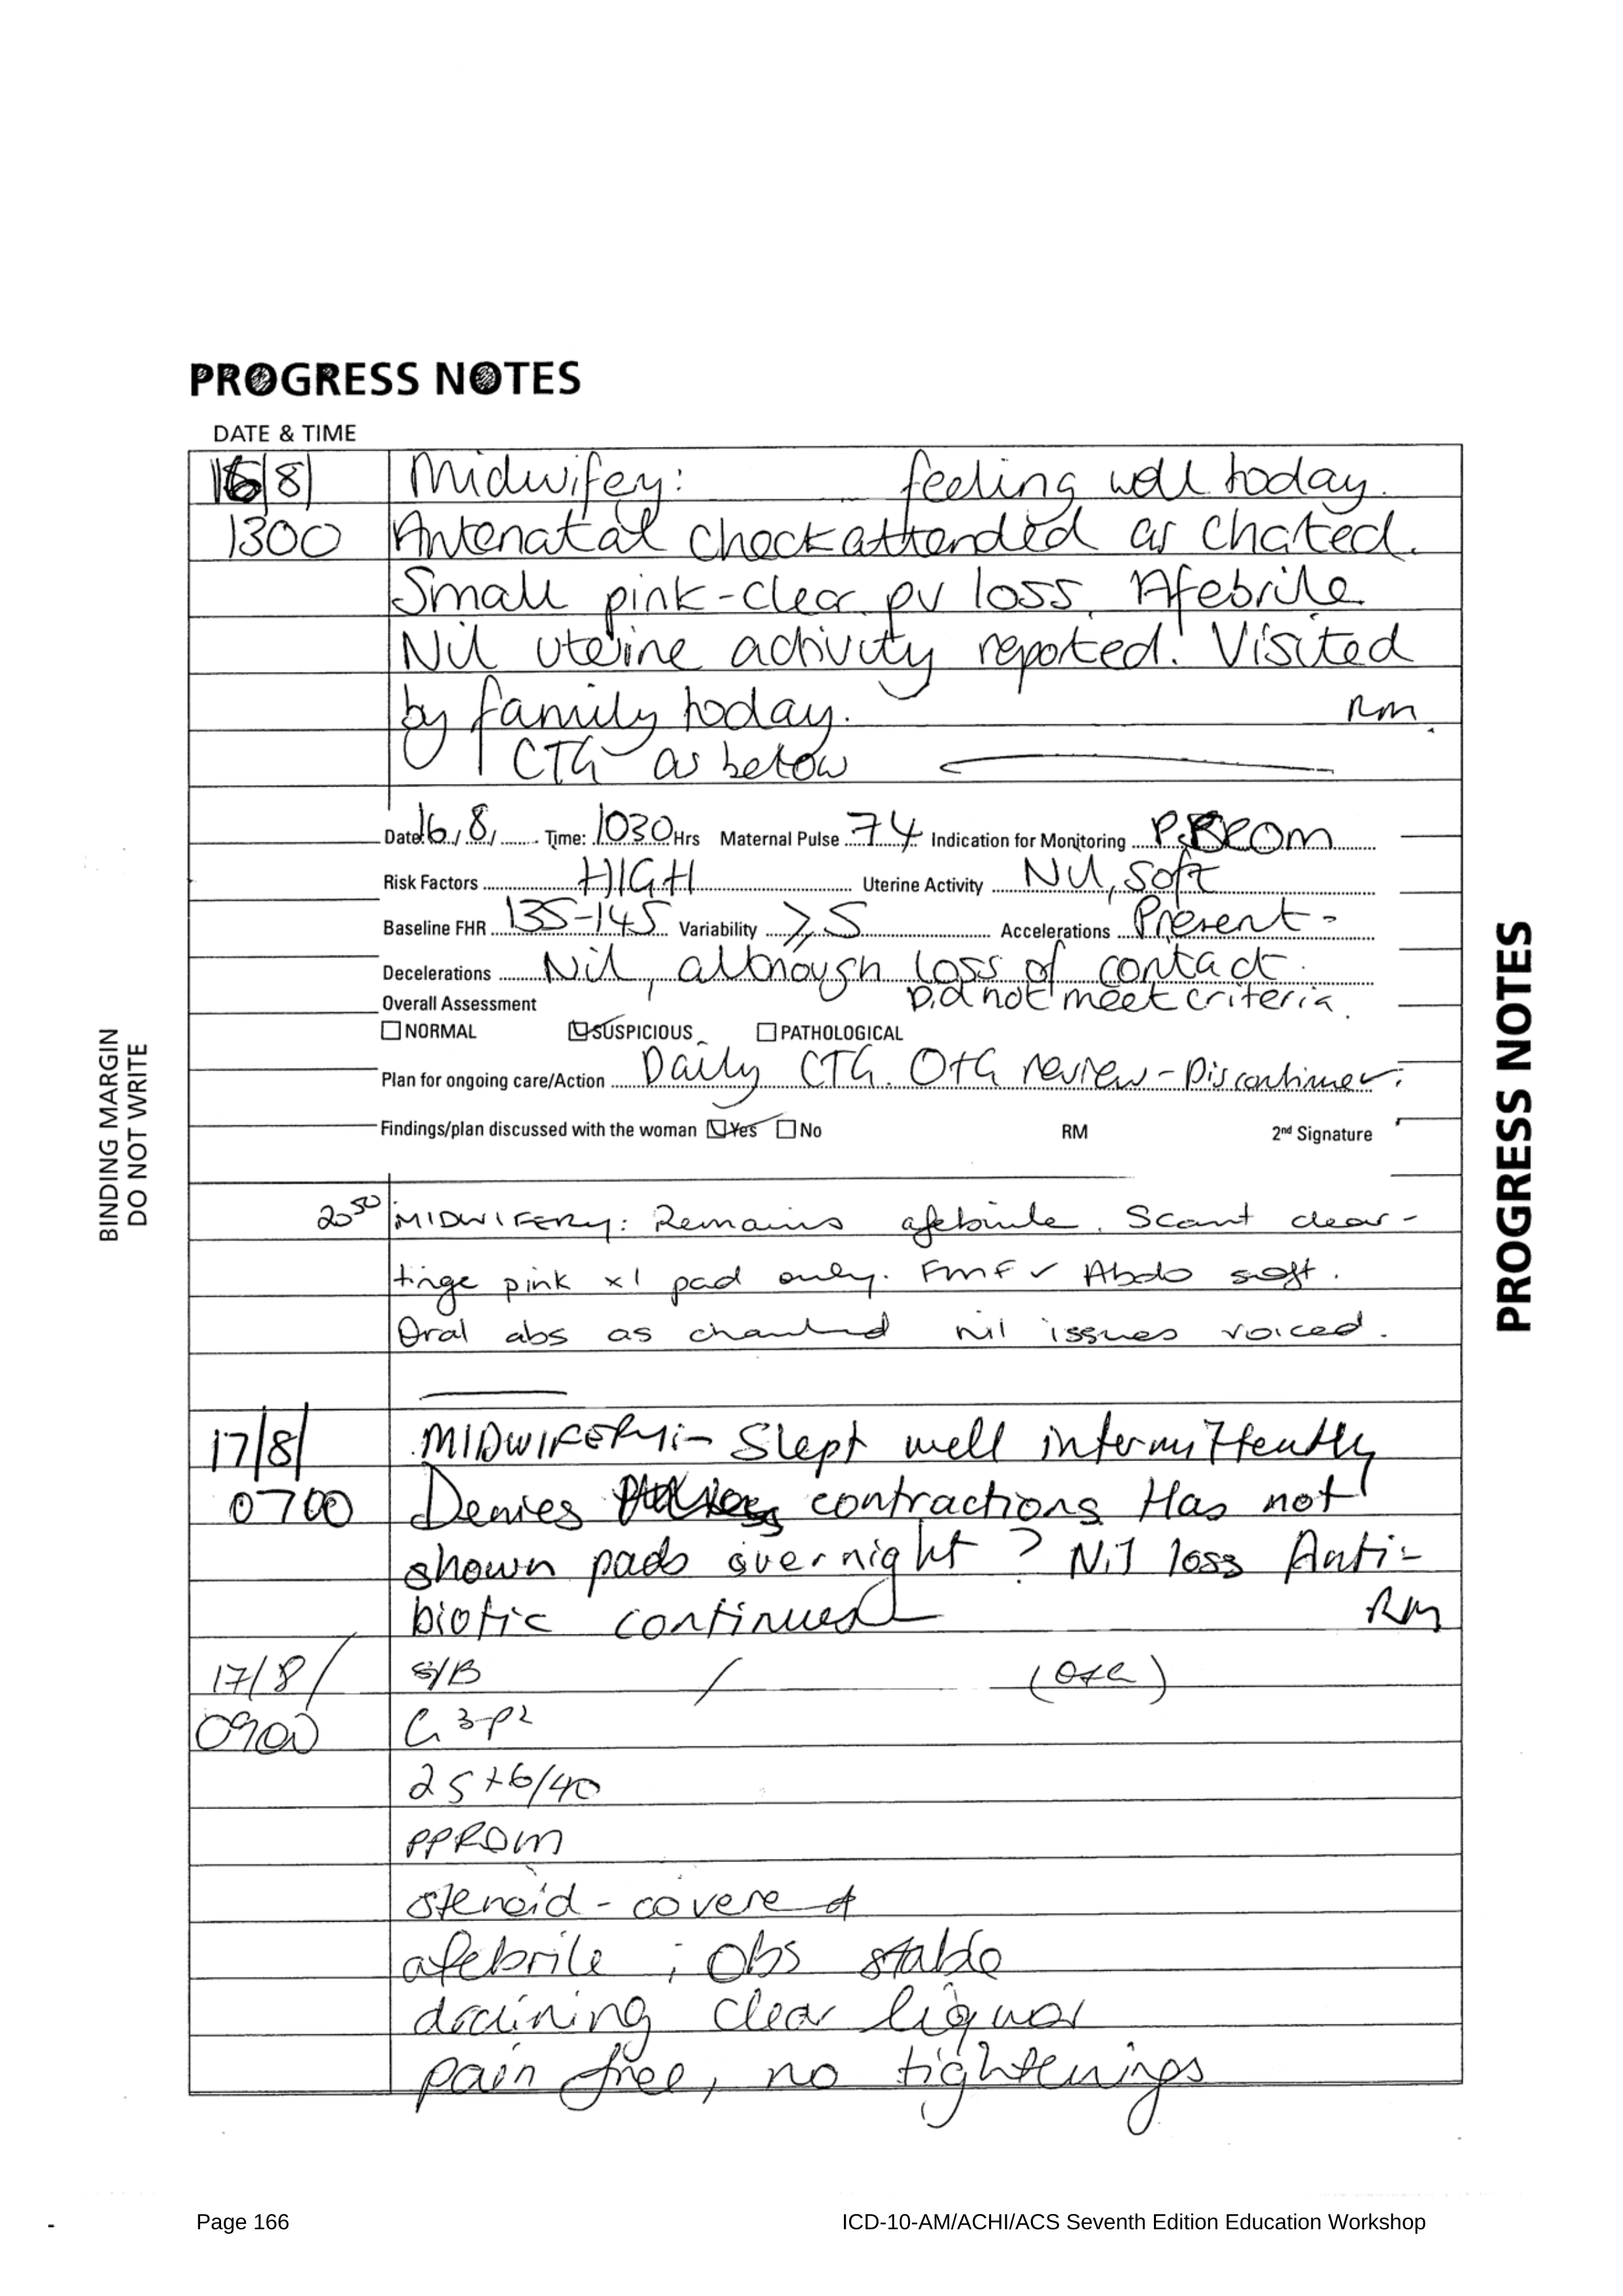 PROGRESS NOTES
DATE & TIME
16/8/ Midwifey: feeling well today.
1300 Antenatal check attended as chated.
Small pink-clear pv loss. Afebrile
Nil uterine activity reported. Visited
by family today. RM
CTG as below
Date 16/8/ Time: 1030 Hrs Maternal Pulse 74 Indication for Monitoring PPROM
Risk Factors HIGH Uterine Activity Nil, soft
Baseline FHR 135-145 Variability >,5 Accelerations Present -
Decelerations Nil, although loss of contact.
Overall Assessment Did not meet criteria.
NORMAL SUSPICIOUS PATHOLOGICAL
Plan for ongoing care/Action Daily CTG. O+G review - Discontinue.
Findings/plan discussed with the woman Yes No RM 2nd Signature
2050 MIDWIFERY: Remains afebrile. Scant clear-
tinge pink x1 pad only. FMF ✓ Abdo soft.
Oral abs as charted nil issues voiced.
17/8/ MIDWIFERY:- Slept well intermittently
0700 Denies contractions Has not
shown pads overnight ? Nil loss Anti-
biotic continued RM
17/8/ S/B / (O+G)
0900 G3P2
25+6/40
PPROM
steroid-covered
afebrile ; obs stable
draining clear liquor
pain free, no tightenings
BINDING MARGIN
DO NOT WRITE
PROGRESS NOTES
Page 166 ICD-10-AM/ACHI/ACS Seventh Edition Education Workshop